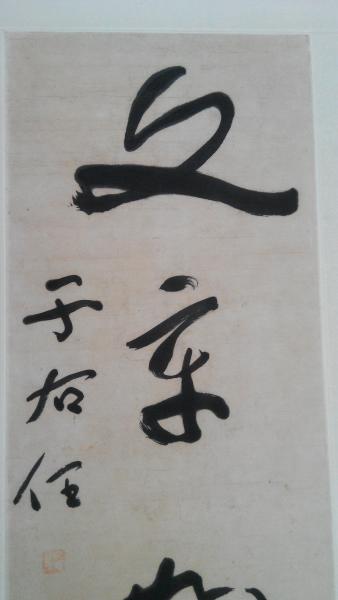 文章
于右任